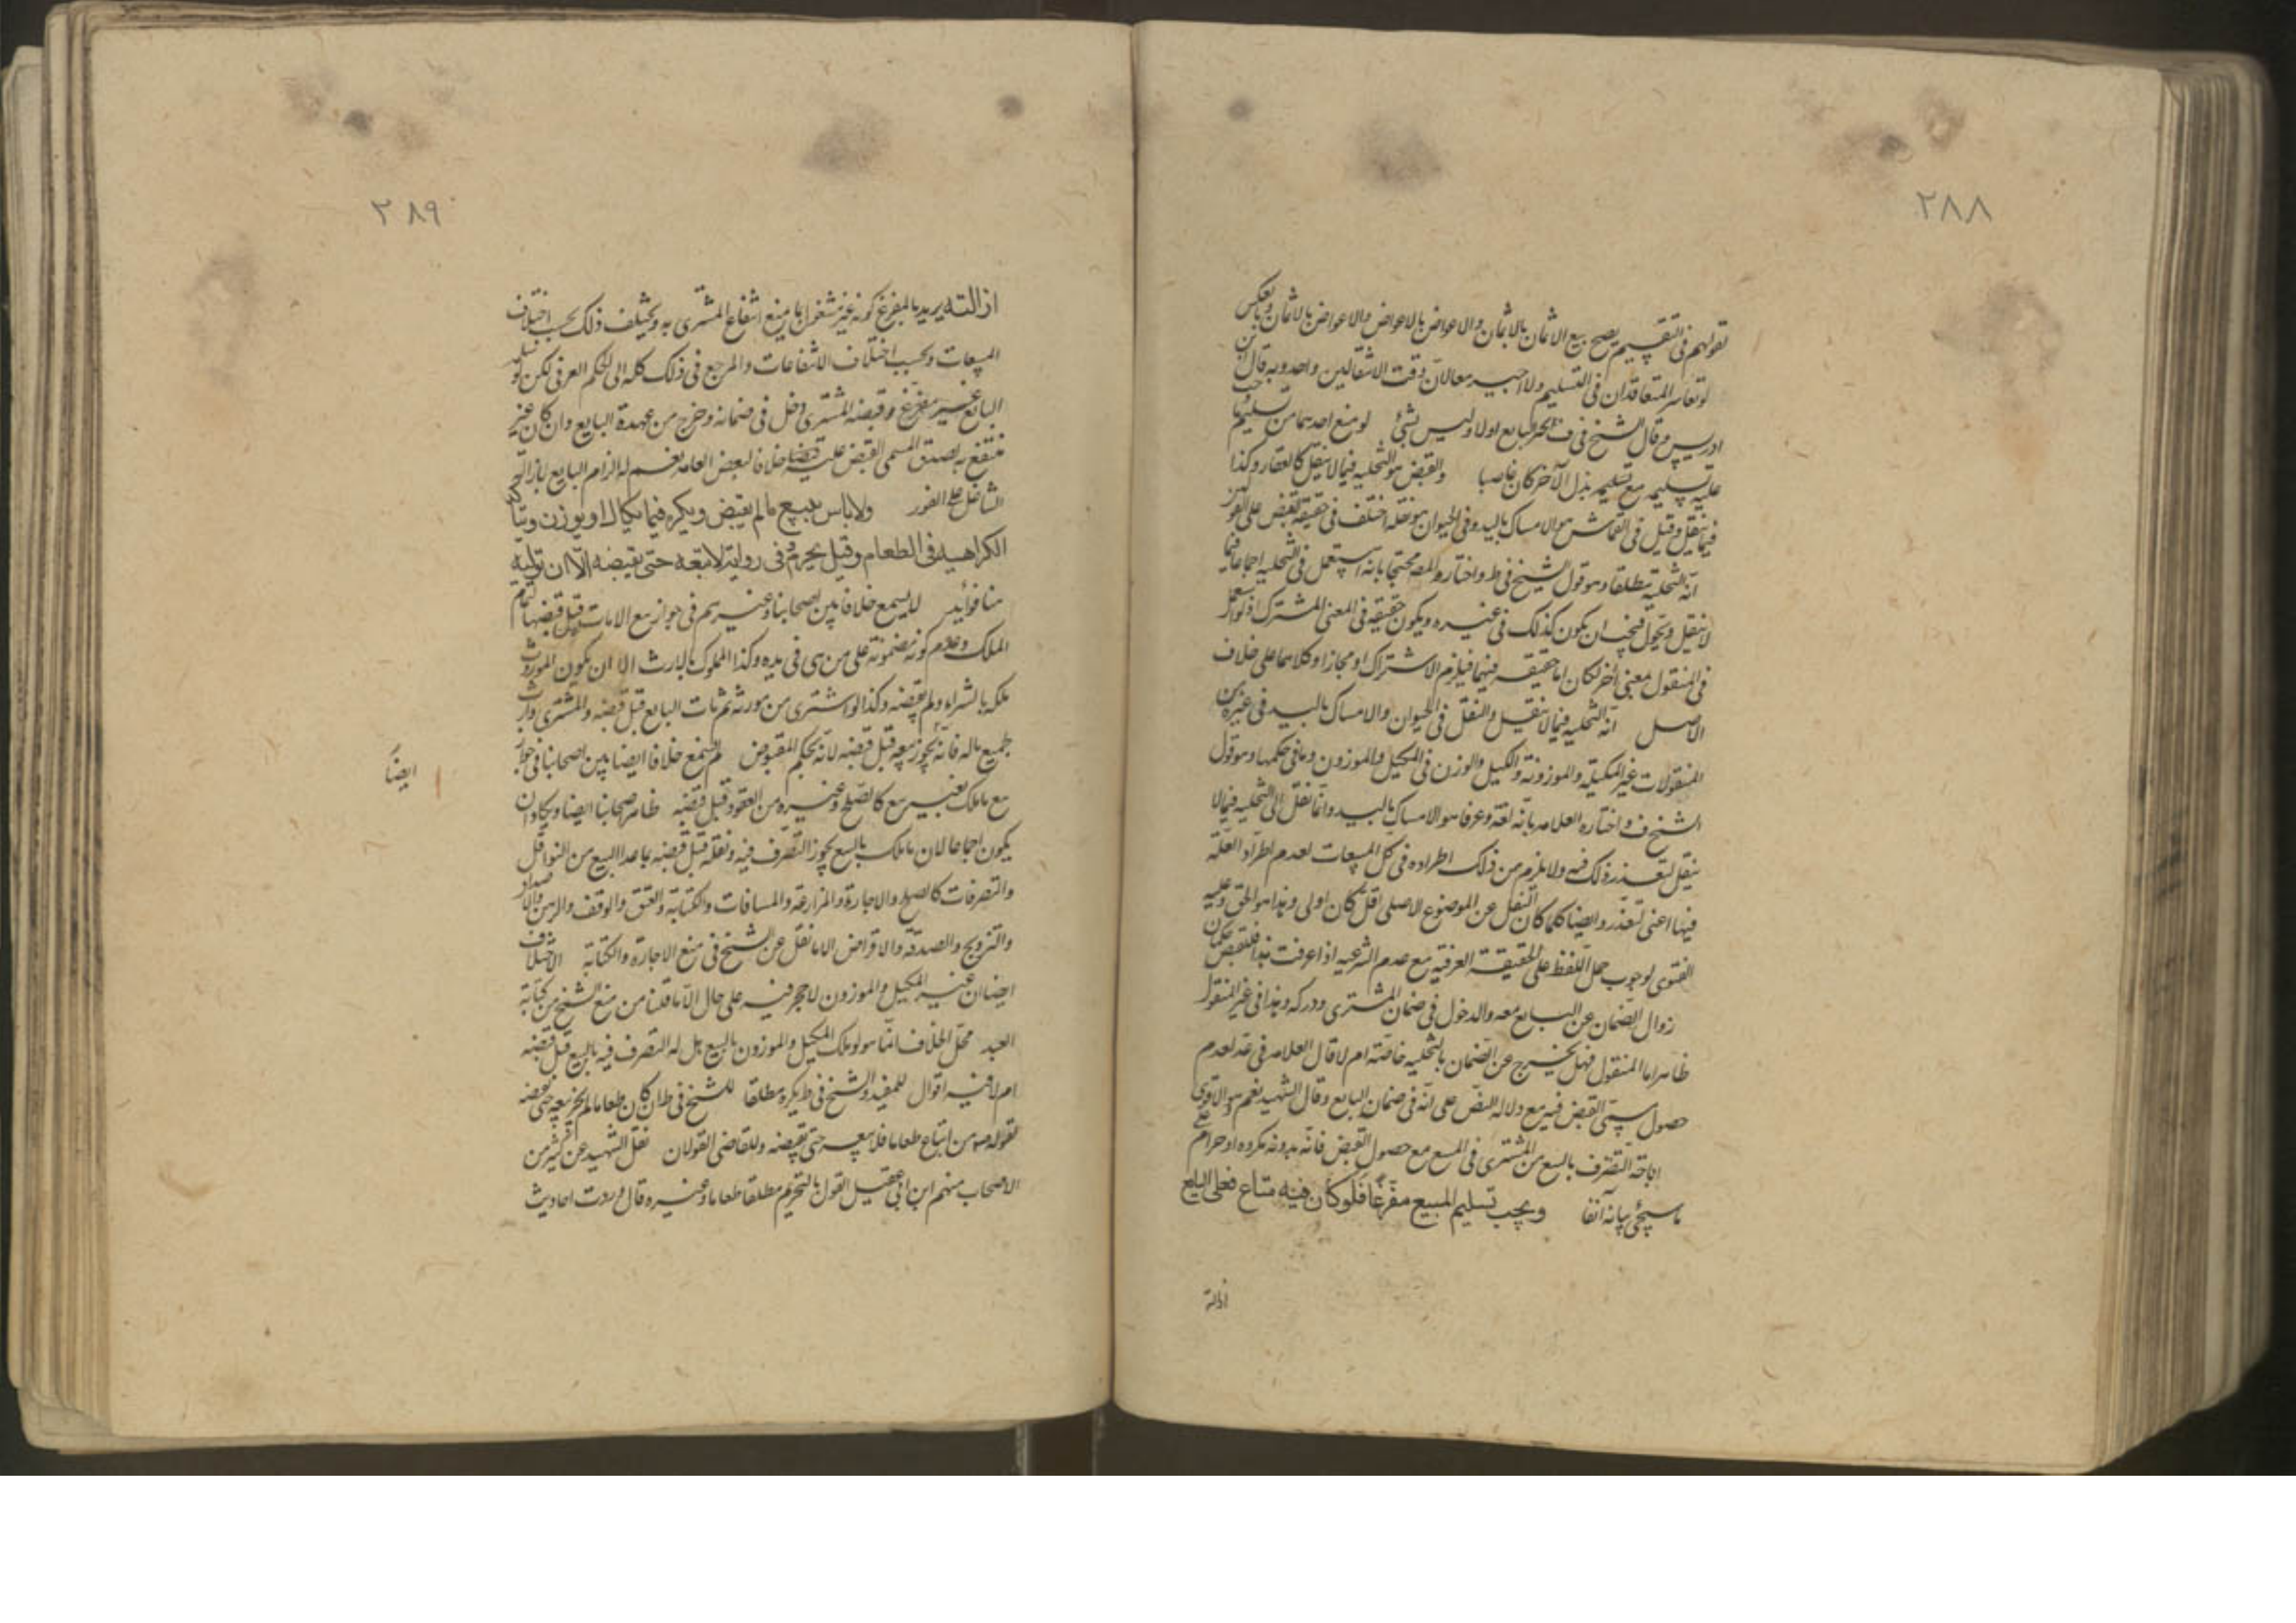 ٢٨٨
تقولهم فى التقسيم يصح بيع الاثمان بالاثمان والاعواض بالاعواض والاعواض بالاثمان وبالعكس
لو تعاسر المتعاقدان فى التسليم ولا اجبر معا لان وقت الانتقالين واحد وبه قال ابن
ادريس وقال الشيخ فى ف يجبر البايع اولا وليس بشئ لو منع احدهما من تسليم ما وجب
عليه تسليمه مع تسليمه بذل الآخر كان غاصبا والقبض هو التخلية فيما لا ينقل كالعقار وكذا
فيما ينقل وقيل فى القماش هو الامساك باليد وفى الحيوان هو نقله اختلف فى حقيقة القبض على
انه التخلية مطلقا وهو قول الشيخ فى ط واختاره المص محتجا بانه استعمل فى التخلية اجماعا فيما
لا ينقل ويحول فيجب ان يكون كذلك فى غيره ويكون حقيقة فى المعنى المشترك اذ لو استعمل
فى المنقول بمعنى آخر لكان اما حقيقة فيهما فيلزم الاشتراك او مجازا وكلاهما على خلاف
الاصل انه التخلية فيما لا ينقل والنقل فى الحيوان والامساك باليد فى غيره من
المنقولات غير المكيلة والموزونة والكيل والوزن فى المكيل والموزون وما فى حكمها وهو قول
الشيخ ف واختاره العلامه بانه لغة وعرفا هو الامساك باليد وانما نقل الى التخلية فيما لا
ينقل لتعذر ذلك فيه ولا يلزم من ذلك اطراده فى كل المبيعات لعدم اطراد العلة
فيها اعنى التعذر وايضا كلما كان النقل عن الموضوع الاصلى اقل كان اولى وهذا هو الحق وعليه
الفتوى لوجوب حمل اللفظ على الحقيقة العرفيه مع عدم الشرعيه اذا عرفت هذا فللقبض حكمان
زوال الضمان عن البايع معه والدخول فى ضمان المشترى ودركه وهذا فى غير المنقول
ظاهر اما المنقول فهل يخرج عن الضمان بالتخلية خاصة ام لا قال العلامه فى عد لعدم
حصول سمى القبض فيه مع دلالة النص على انه فى ضمان البايع وقال الشهيد نعم وهو الاقوى
اباحة التصرف بالبيع من المشترى فى المبيع مع حصول القبض فانه بدونه مكروه او حرام على
ما سيجئ بيانه آنفا ويجب تسليم المبيع مفرغا فلو كان فيه متاع فعلى البايع
ازالة
٢٨٩
ازالته يريد بالمفرغ كونه غير مشغول بما يمنع انتفاع المشترى به ويختلف ذلك بحسب اختلاف
المبيعات وبحسب اختلاف الانتفاعات والمرجع فى ذلك كله الى الحكم العرفى لكن لو سلمه
البايع غير مفرغ وقبضه المشترى دخل فى ضمانه وخرج من عهدة البايع وان كان غير
منتفع به لصدق المسمى القبض عليه قبضا خلافا لبعض العامه نعم له الزام البايع بازالة
الشاغل على الفور ولا باس ببيع ما لم يقبض ويكره فيما يكال او يوزن ويتأكد
الكراهيه فى الطعام وقيل يحرم وفى رواية لا تبعه حتى يقبضه الّا ان توليه
هنا فوائد لا يسمع خلافا بين اصحابنا وغيرهم فى جواز بيع الامانات قبل قبضها لتمام
الملك وعدم كونه مضمونة على من هى فى يده وكذا المملوك بالارث الا ان يكون المورث
ملكه بالشراء ولم يقبضه وكذا لو اشترى من مورثه ثم مات البايع قبل قبضه والمشترى وارث
جميع ماله فانه يجوز بيعه قبل قبضه لانه بحكم المقبوض لم نسمع خلافا ايضا بين اصحابنا فى جواز
بيع ما ملك بغير بيع كالصلح وغيره من العقود قبل قبضه ظاهر اصحابنا ايضا ويكاد ان
يكون اجماعا لان ما ملك بالبيع يجوز التصرف فيه ونقله قبل قبضه بما عدا البيع من النواقل
والتصرفات كالصلح والاجارة والمزارعة والمساقات والكتابة والعتق والوقف والرهن والاصداق
والتزويج والصدقة والاقراض الا ما نقل عن الشيخ فى منع الاجارة والكتابة الاختلاف
ايضا ان غير المكيل والموزون لا حجر فيه على حال الّا ما قلنا من منع الشيخ من كتابة
العبد محل الخلاف انما هو لو ملك المكيل والموزون بالبيع هل له التصرف فيه بالبيع قبل قبضه
ام لا فيه اقوال للمفيد والشيخ فى ط يكره مطلقا للشيخ فى ط ان كان طعاما لم يجز بيعه حتى يقبضه
لقوله ص من ابتاع طعاما فلا يبيعه حتى يقبضه وللقاضى القولان نقل الشهيد عن كثير من
الاصحاب منهم ابن ابى عقيل القول بالتحريم مطلقا طعاما وغيره قال وردت احاديث
ايضاً